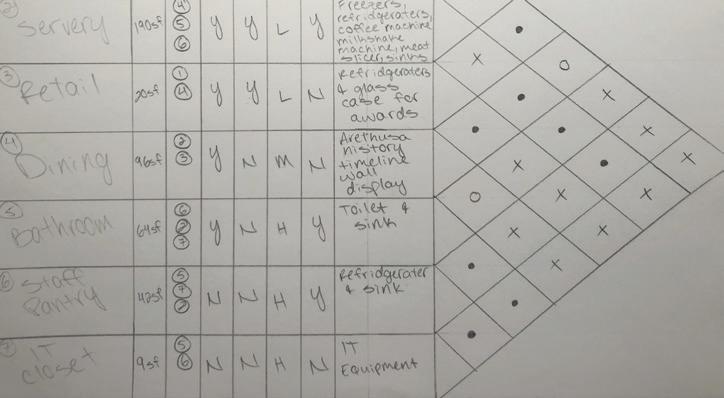 ② Servery 190sf ④ ⑤ ⑥ Y Y L Y Freezers,
refridgeraters,
coffee machine
milkshake
machine, meat
slicer, sinks
③ Retail 20sf ① ④ Y Y L N Refridgeraters
& glass
case for
awards
④ Dining 96sf ② ③ Y N M N Arethusa
history
timeline
wall
display
⑤ Bathroom 64sf ⑥ ② ⑦ Y N H Y Toilet &
sink
⑥ Staff
Pantry 42sf ⑤ ⑦ ② N N H Y Refridgerater
& sink
⑦ IT
closet 9sf ⑤ ⑥ N N H N IT
Equipment